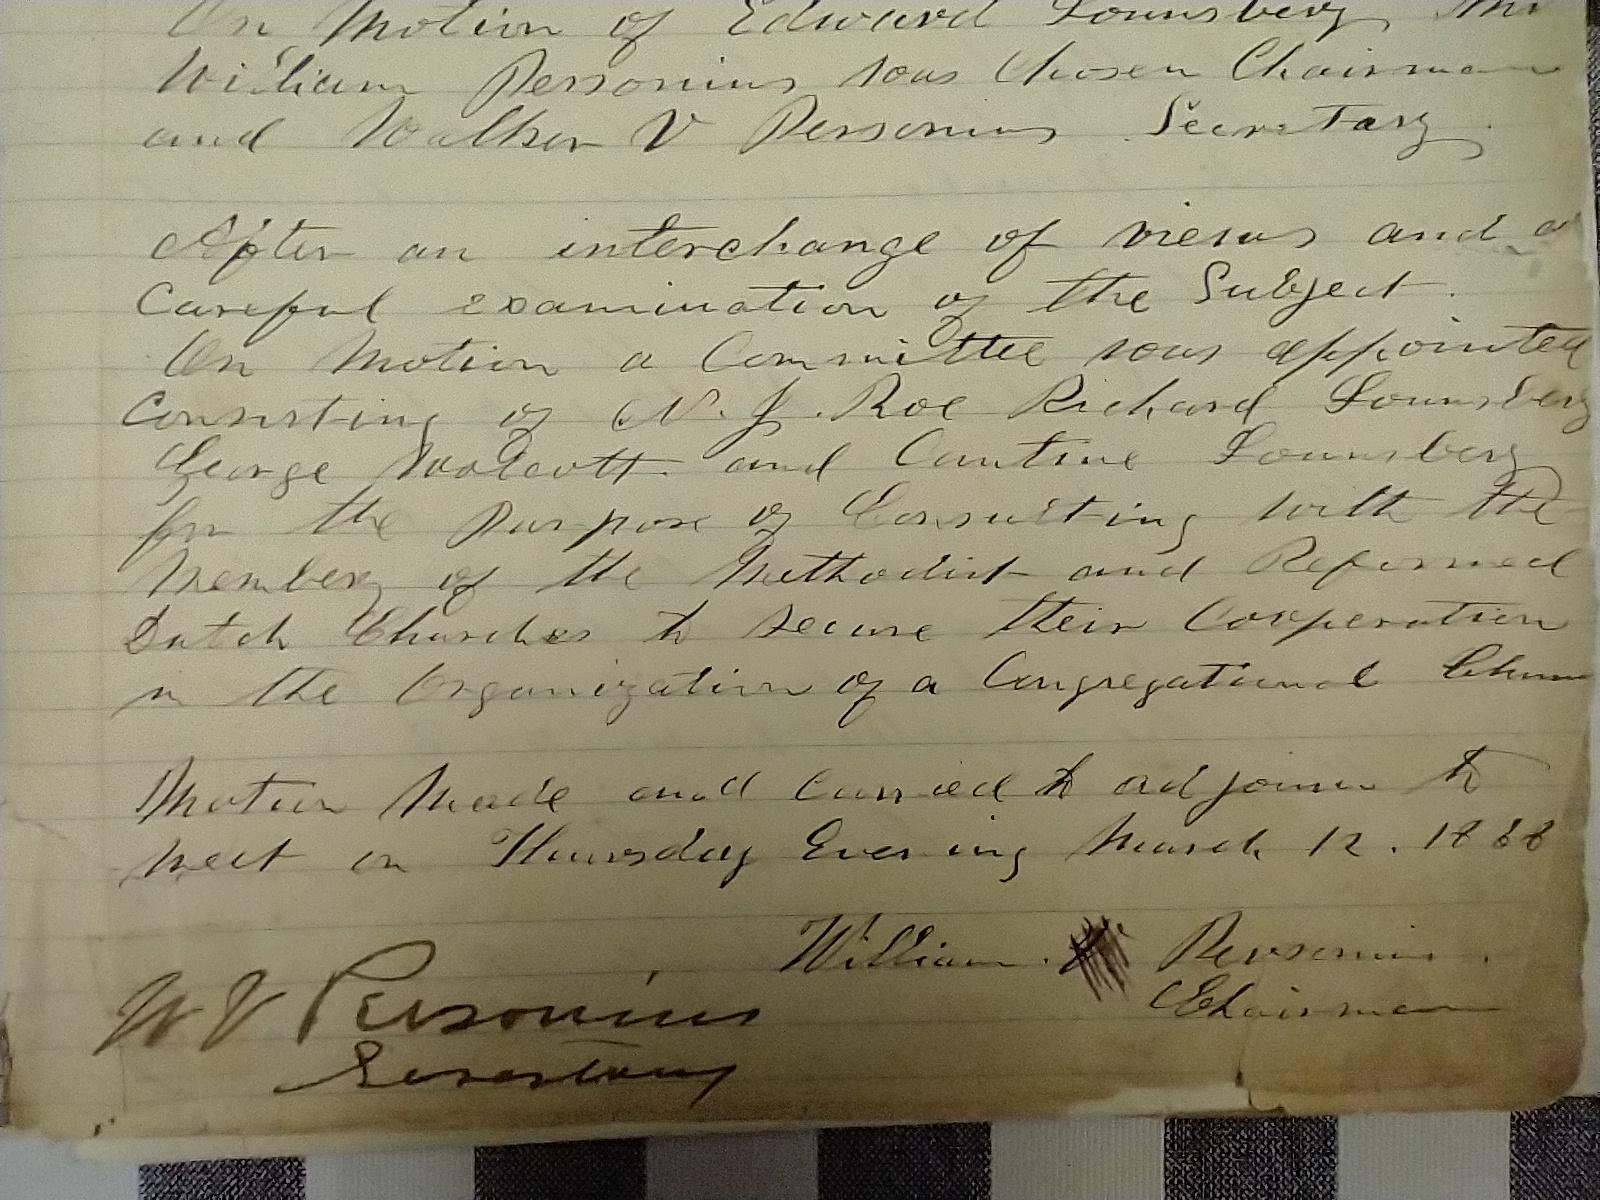 On Motion of Edward Lounsbery Mr
William Personius was Chosen Chairman
and Walker V Personius Secretary.
After an interchange of views and a
Careful examination of the Subject.
On Motion a Committee was appointed
Consisting of N. J. Roe Richard Lounsbery
George Wolcott and Cantine Lounsbery
for the Purpose of Consulting with the
Members of the Methodist and Reformed
Dutch Churches to secure their Cooperation
in the Organization of a Congregational
Motion Made and Carried to adjourn to
Meet on Thursday Evening March 12. 1868
William. Personius.
Chairman
W V Personius
Secretary